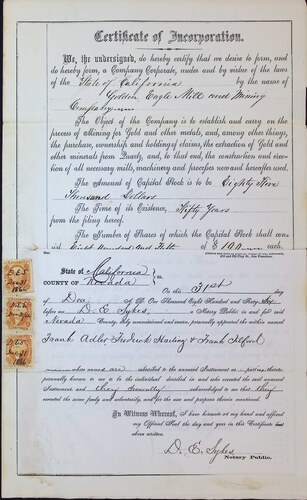 Certificate of Incorporation.
We, the undersigned, do hereby certify that we desire to form, and
do hereby form, a Company Corporate, under and by virtue of the laws
of the State of California by the name of
Golden Eagle Mill and Mining
Company
The Object of the Company is to establish and carry on the
process of Mining for Gold and other metals, and, among other things,
the purchase, ownership and holding of claims, the extraction of Gold and
other minerals from Quartz, and, to that end, the construction and erec-
tion of all necessary mills, machinery and processes now and hereafter used.
The Amount of Capital Stock is to be Eighty Five
Thousand Dollars
The Time of its Existence, Fifty Years
from the filing hereof.
The Number of Shares of which the Capital Stock shall con-
sist Eight Hundred and Fifty of $100 each
State of California
COUNTY OF Nevada
On this 31st day
of Dec A.D. One Thousand Eight Hundred and Sixty Six
before me D. E. Sykes, a Notary Public in and for said
Nevada County, duly commissioned and sworn, personally appeared the within named
Frank Adler Frederick
whose names are subscribed to the annexed Instrument as parties thereto
personally known to me to be the individual described in and who executed the said annexed
Instrument and they severally acknowledged to me that they
executed the same freely and voluntarily, and for the uses and purposes therein mentioned.
In Witness Whereof, I have hereunto set my hand and affixed
my Official Seal the day and year in this Certificate first
above written.
D. E. Sykes
Notary Public.